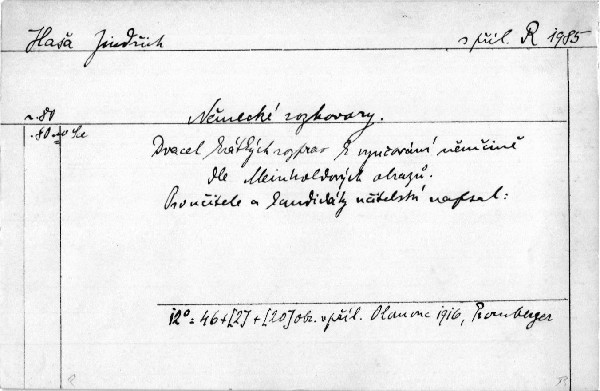 Haša Jindřich s příl. R 1985
Německé rozhovory.
Dvacet krátkých rozprav k vyučování němčině
dle Meinholdových obrazů.
Pro učitele a kandidáty učitelství napsal:
12° = 46+[2]+[20] obr. v příl. Olomouc 1916, Promberger